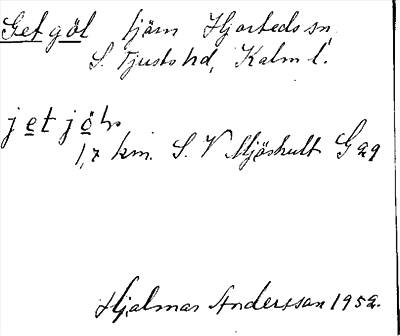 Getgöl tjärn Hjorteds sn,
S. Tjusts hd, Kalm l.
jetjö
1,7 km. S. V Mjöshult Gag
Hjalmar Andersson 1952.